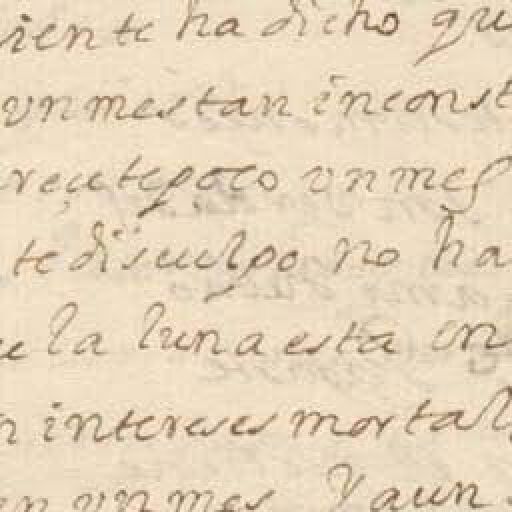 iente ha dicho qu
vn mes tan inconst
poco vn mes
te disculpo no ha
la luna esta en
n intereses mortal
en vn mes Y aun